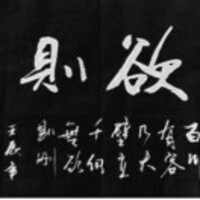 欲則
百川
有容
乃大
壁立
千仞
無欲
則剛